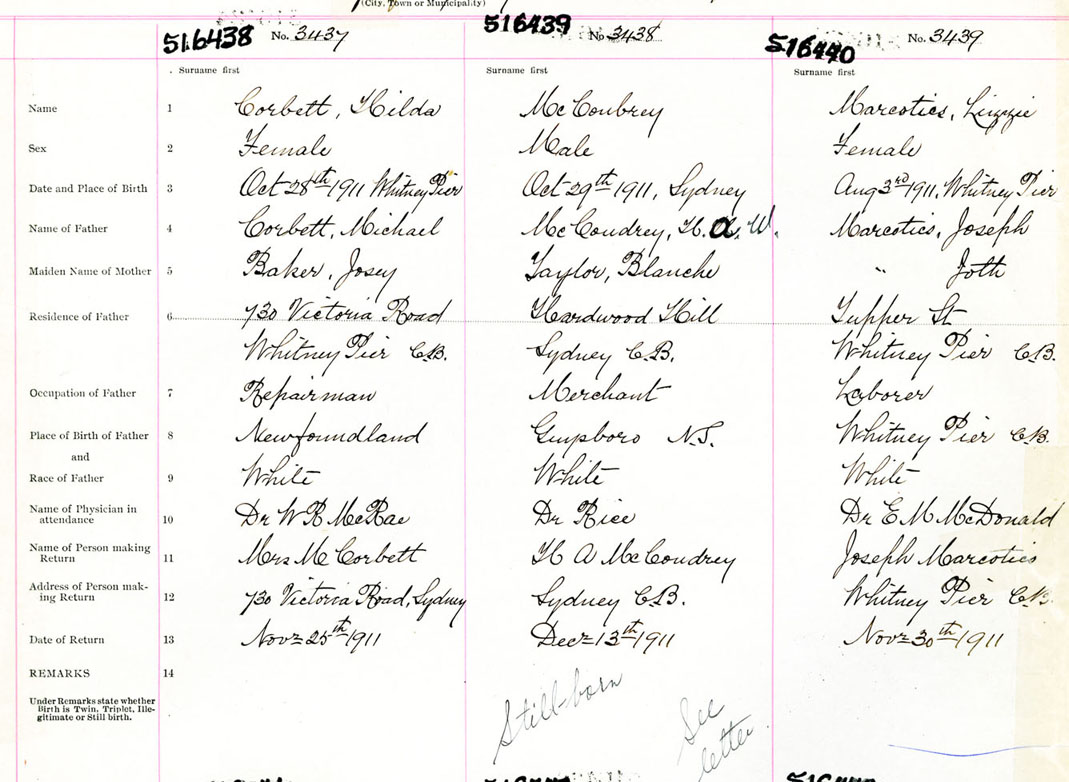 (City, Town or Municipality)
516438 No. 3437 516439 No 3438 516440 No. 3439
Surname first Surname first Surname first
Name 1 Corbett, Hilda McCoubrey Marcotics, Lizzie
Sex 2 Female Male Female
Date and Place of Birth 3 Oct 28th 1911 Whitney Pier Oct 29th 1911, Sydney Aug 3rd 1911, Whitney Pier
Name of Father 4 Corbett, Michael McCoudrey, H. A. W. Marcotics, Joseph
Maiden Name of Mother 5 Baker, Josey Taylor, Blanche " Joth
Residence of Father 6 730 Victoria Road Hardwood Hill Tupper St
Whitney Pier C.B. Sydney C.B. Whitney Pier C.B.
Occupation of Father 7 Repairman Merchant Laborer
Place of Birth of Father 8 Newfoundland Guysboro N.S. Whitney Pier C.B.
and
Race of Father 9 White White White
Name of Physician in
attendance 10 Dr W R McRae Dr Rice Dr E M McDonald
Name of Person making
Return 11 Mrs M Corbett H A McCoudrey Joseph Marcotics
Address of Person mak-
ing Return 12 730 Victoria Road, Sydney Sydney C.B. Whitney Pier C.B.
Date of Return 13 Novr 25th 1911 Decr 13th 1911 Novr 30th 1911
REMARKS 14
Under Remarks state whether
Birth is Twin, Triplet, Ille-
gitimate or Still birth.
Still-born
See
letter